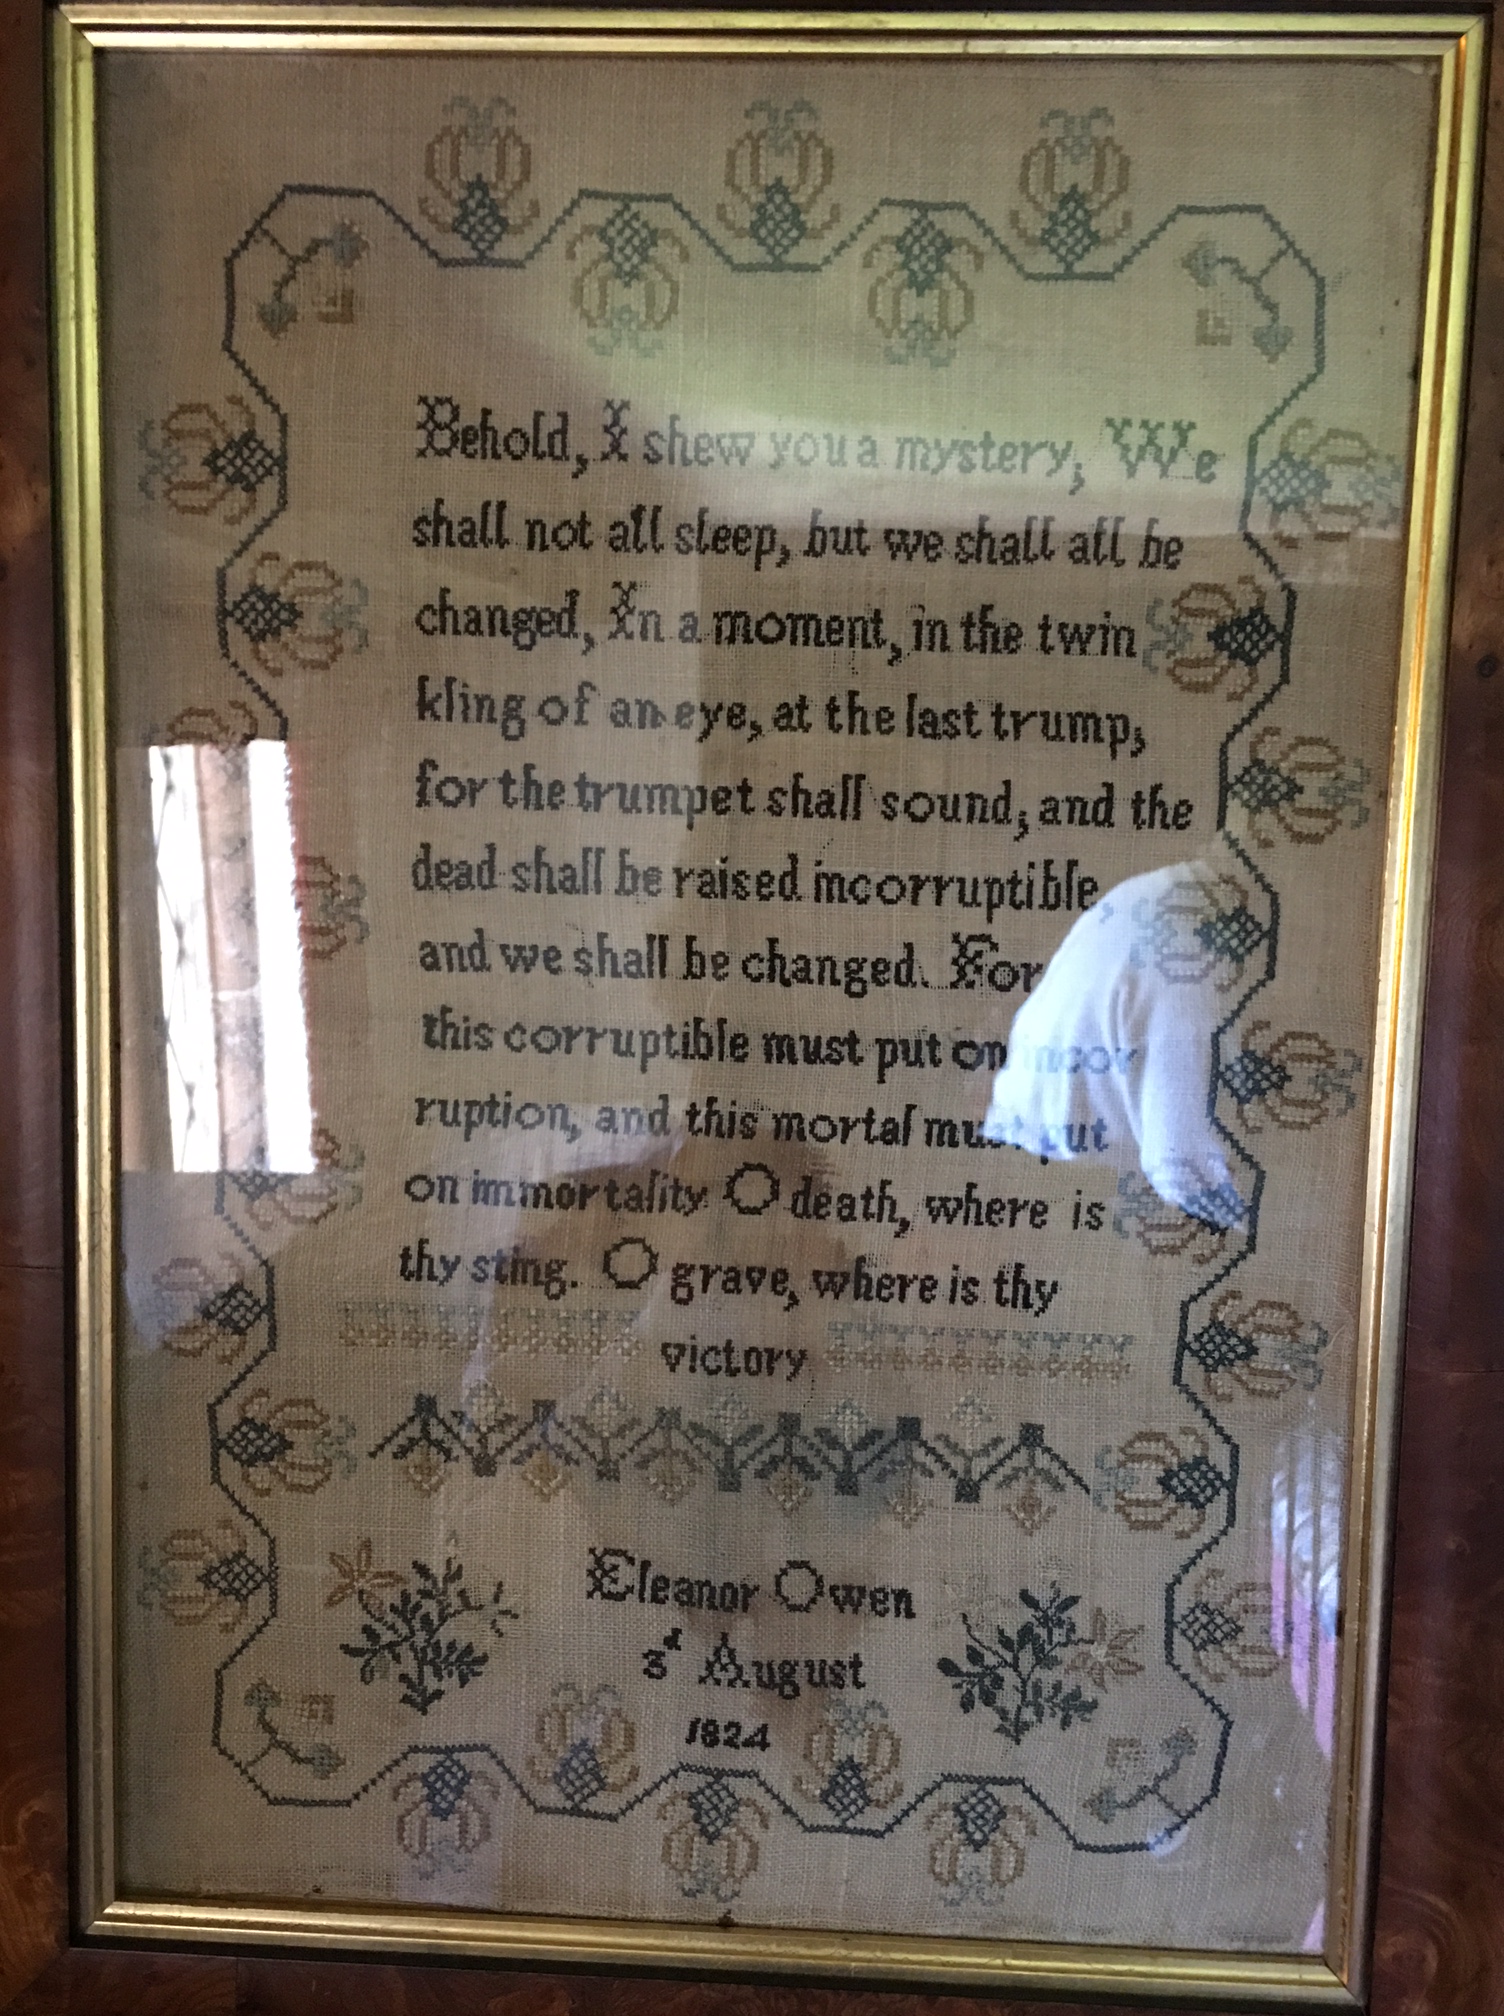 Behold, I shew you a mystery; We
shall not all sleep, but we shall all be
changed, In a moment, in the twin
kling of an eye, at the last trump;
for the trumpet shall sound; and the
dead shall be raised incorruptible,
and we shall be changed. For
this corruptible must put on incor
ruption, and this mortal must put
on immortality O death, where is
thy sting. O grave, where is thy
victory
Eleanor Owen
3d August
1824